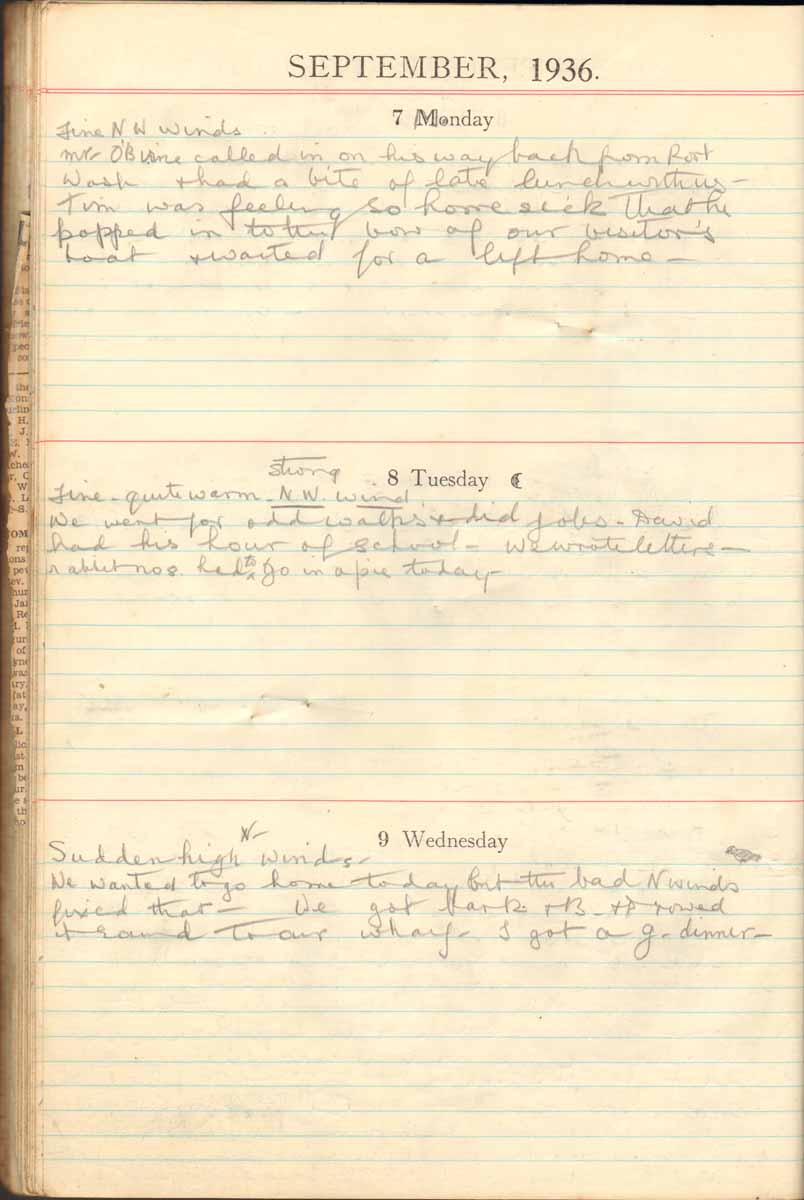 SEPTEMBER, 1936.
7 Monday
Fine N W winds
mr O'Birne called in on his way back from Port
Wash + had a bite of late lunch with us -
Tim was feeling so home sick that he
popped in to the bow of our visitor's
boat + waited for a lift home -
8 Tuesday
strong
Fine - quite warm - N.W. wind
We went for odd walks + did jobs - David
had his hour of school - We wrote letters -
rabbit no 2. had to go in a pie today
9 Wednesday
N
Sudden high winds -
We wanted to go home today but the bad N winds
fixed that - We got bark + B - + P rowed
it round to our wharf - I got a g. dinner -